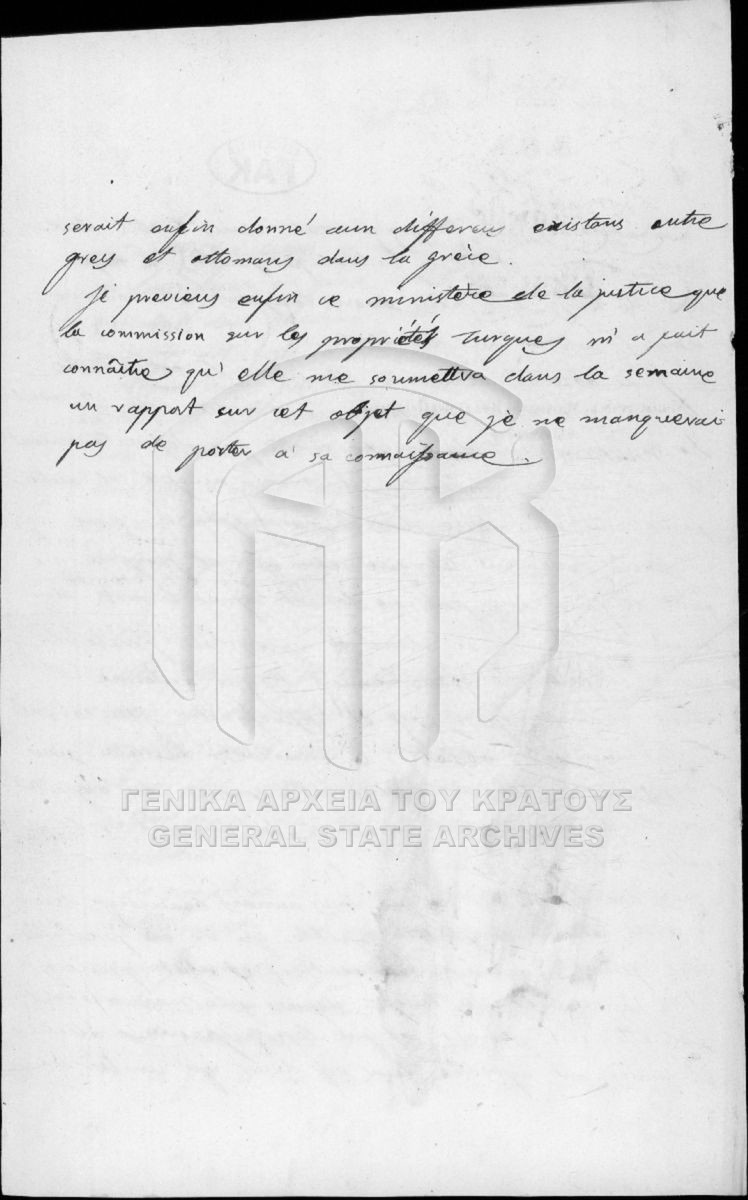 serait enfin donné aux différens existans entre
grecs et ottomans dans la grèce.
Je previens enfin ce ministère de la justice que
la commission sur les propriétés turques m'a fait
connaître qu'elle me soumettra dans la semaine
un rapport sur cet objet que je ne manquerai
pas de porter à sa connaissance.
ΓΑΚ
ΓΕΝΙΚΑ ΑΡΧΕΙΑ ΤΟΥ ΚΡΑΤΟΥΣ
GENERAL STATE ARCHIVES